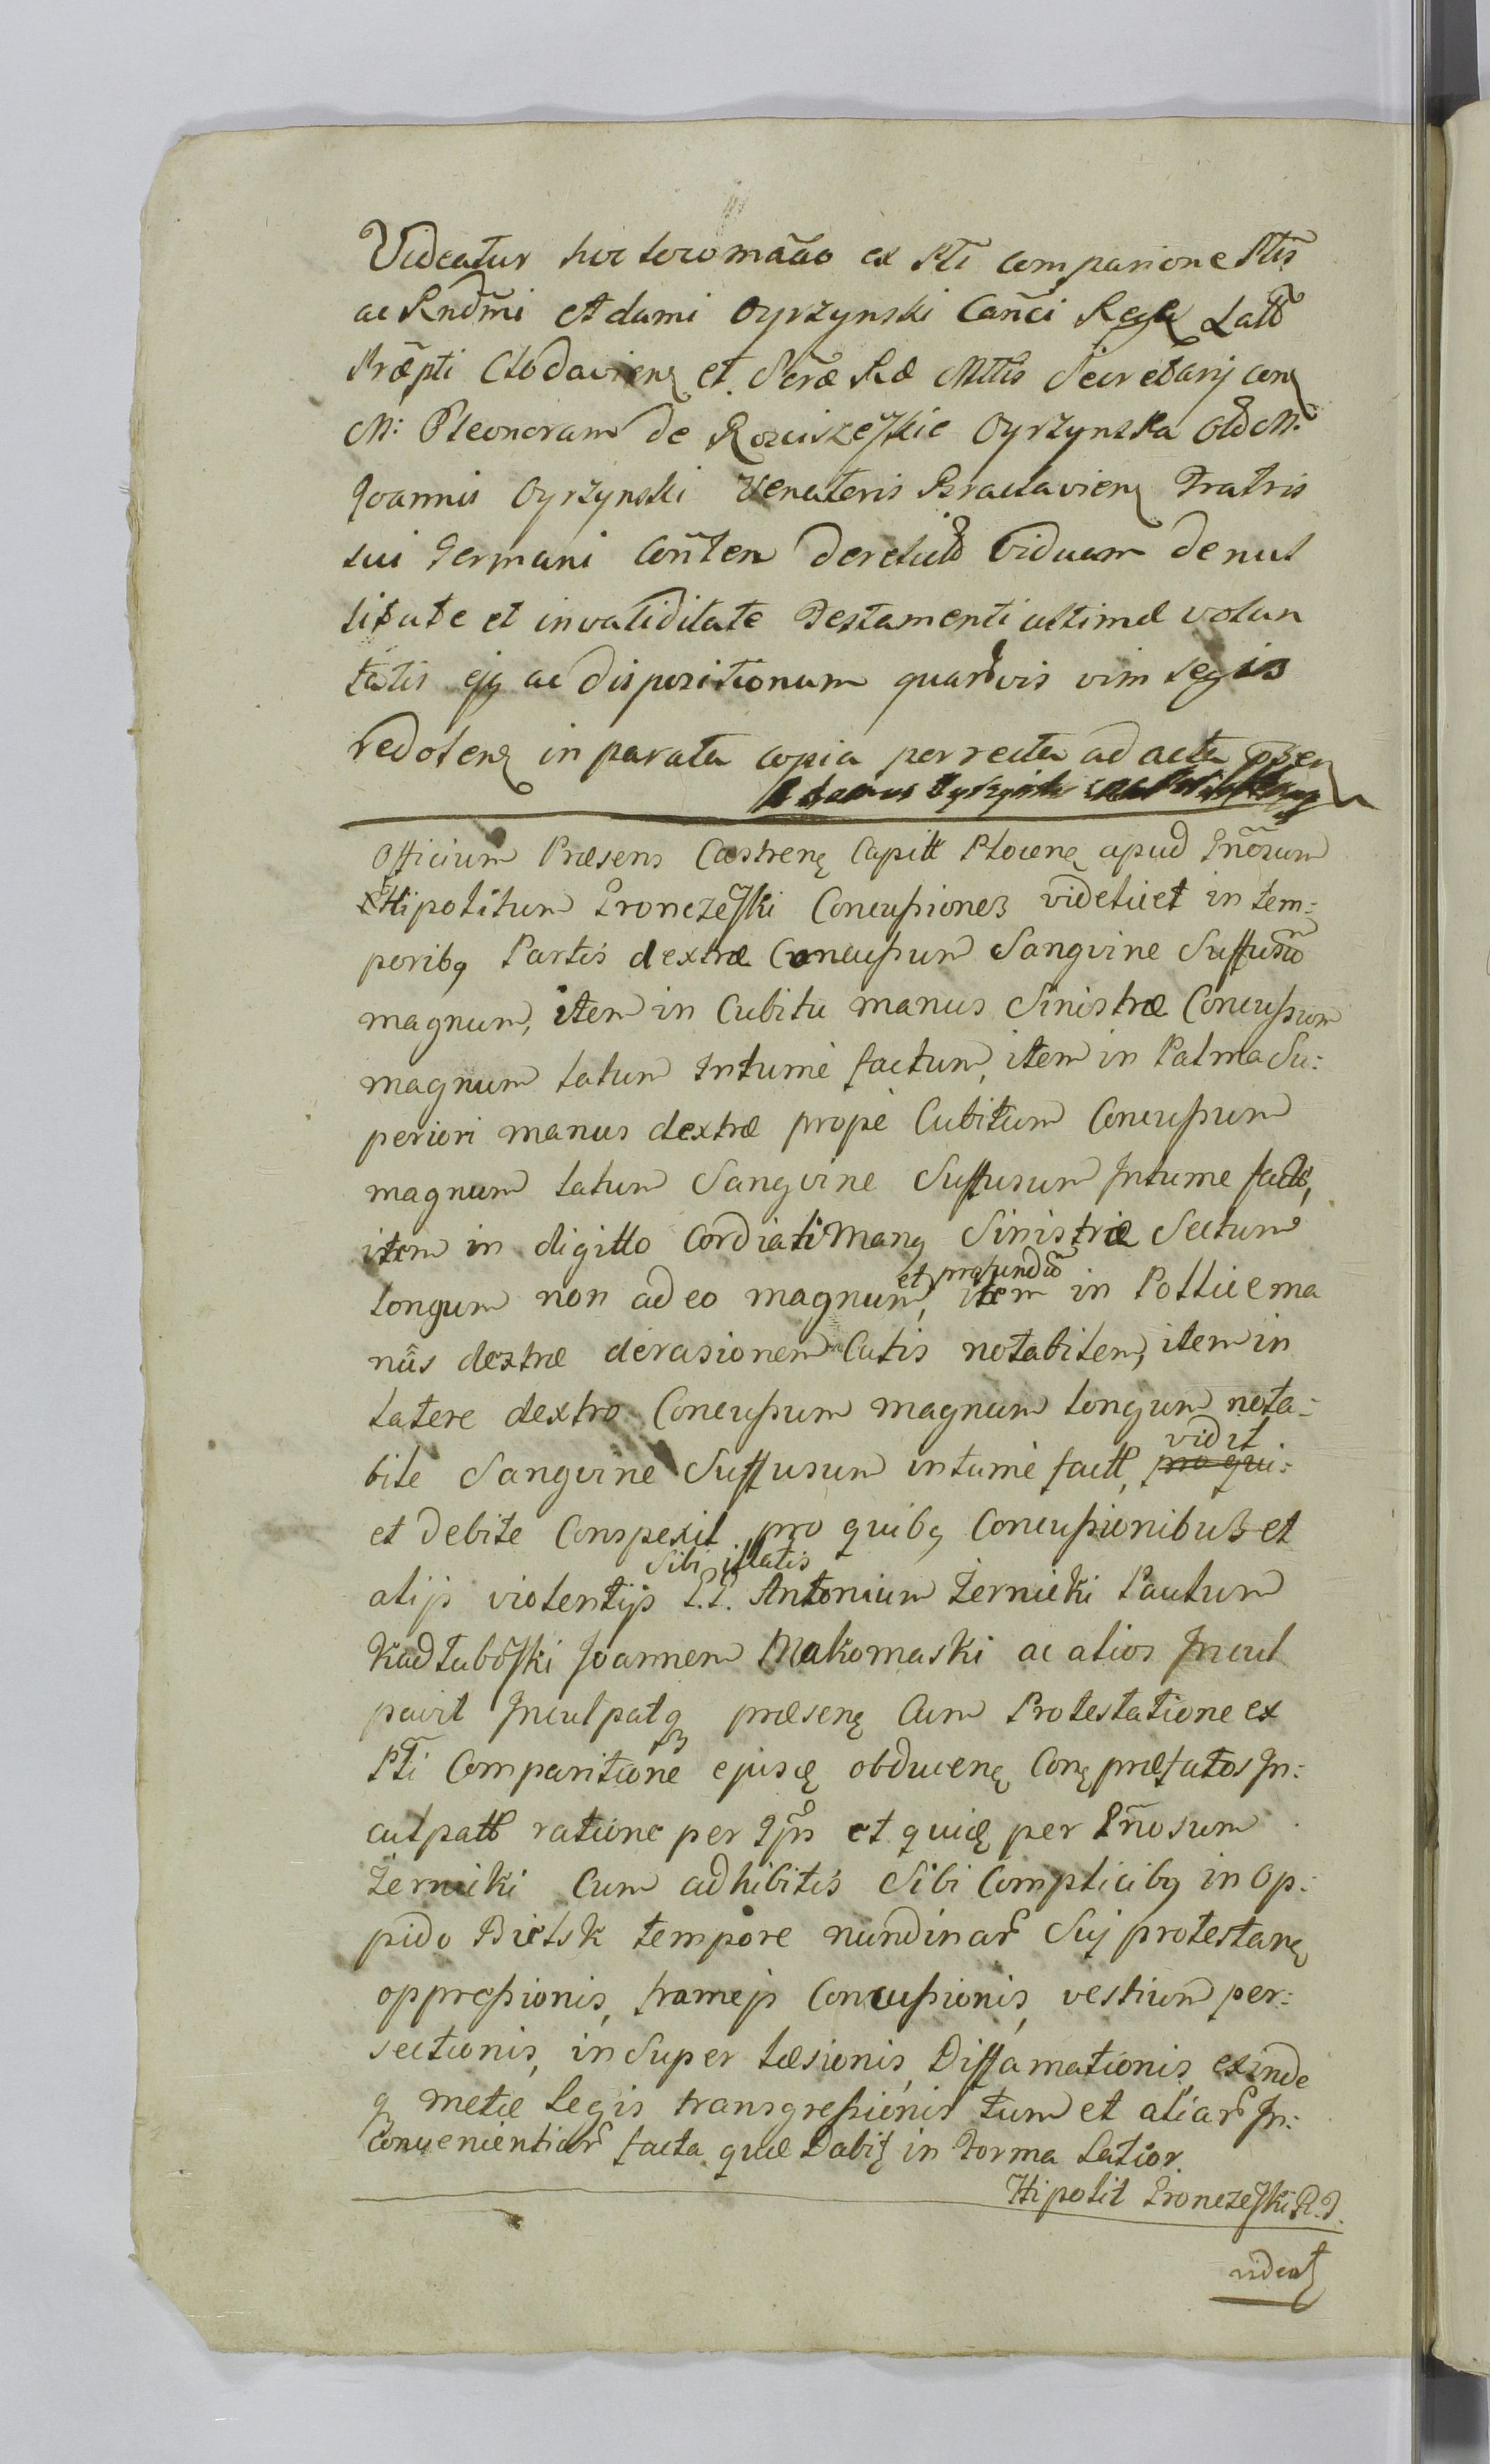 Videatur hoc loco mãão ex Pti comparione Ptis
ac Rndm̃i Adami Oyrzynski Cañci Regā Latt
Præpti Clodaviens et Scræ Ræ Mttis Secretarij con
M: Eleonoram de Rosciszeskie Oyrzynska Olt M:
Joannis Oyrzynski Venatoris Braclaviens Fratris
sui Germani Coñlem derelictt Viduam de nul
litate et invaliditate Testamenti ultimæ volun
tatis ejq ac dispositionum quarvis vim legis
redolens in parata copia porrecta ad acta
Adamus Oyrzynski
Officium Præsens Castrenę Capitt Plocenę apud Gñosum
Hipolitum Gronczeski Concussiones videlicet in tem:
poribq Partis dextræ Concussum Sangvine Suffusũ
magnum, item in Cubitu manus Sinistræ Concussum
magnum latum Intume factum, item in Palma Su:
periori manus dextræ prope Cubitum Concussum
magnum latum Sangvine Suffusum Intume fact,
item in digitto Cordiali Manq Sinistræ Sectum
longum non adeo magnum, et profundũ item in Pollice ma
nûs dextræ derasionem Cutis notabilem, item in
latere dextro Concussum magnum longum nota:
bile Sangvine Suffusum intume factt, pro qui: vidit
et debite Conspexit pro quibq Concussionibus et
alijs violentijs Sibi illatis G.G. Antonium Zernicki Paulum
Kadłuboski Joannem Makomaski ac alios Incul
pavit Inculpatqȝ præsenę Cum Protestatione ex
Pti Comparitione ejuscę obducenę Conę præfatos In:
culpatt ratione per Ips et quicę per Gñosum
Zernicki Cum adhibitis Sibi Complicibq in Op:
pido Bielsk tempore nundinar Suj protestanę
oppressionis, tramejs Concussionis, vestium per:
sectionis, insuper læsionis, Diffamationis exinde
qȝ metæ Legis transgressionis tum et aliar In:
convenientiar facta quæ Dabit in Forma Latior.
Hipolit Gronczeski R. P.
videat